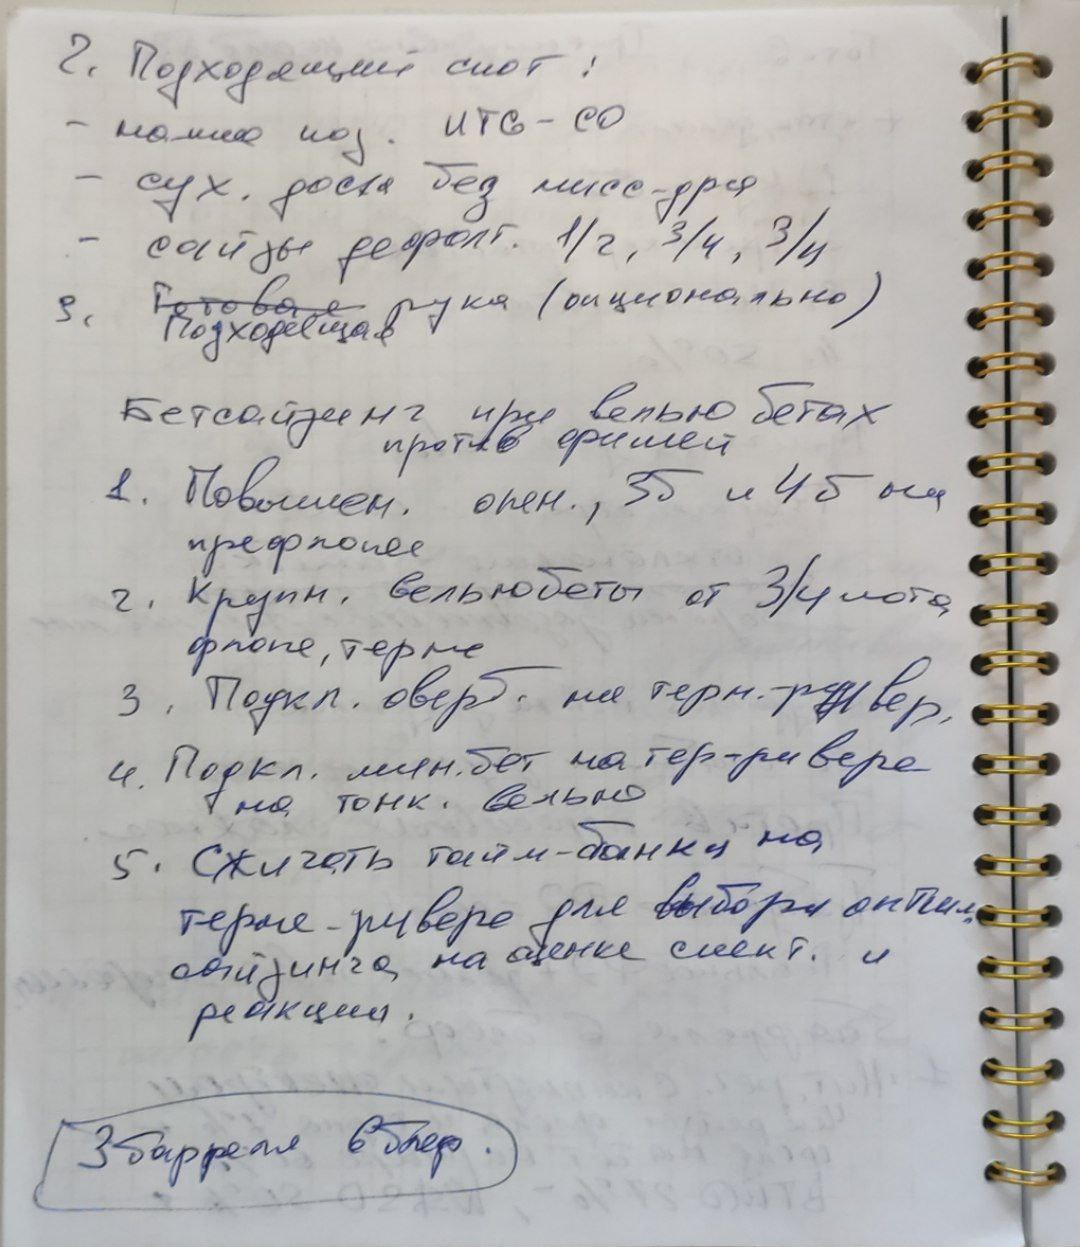 2. Подходящий спот:
- наша поз. UTG - CO
- сух. доска без мисс-дро
- сайзы дефолт. 1/2, 3/4, 3/4
3. Готовая рука (опционально)
Подходящая
Бетсайзинг при велью бетах
против фишей
1. Повышен. опен., 3б и 4б на
префлопе
2. Крупн. вельюбеты от 3/4 пота
флопе, терне
3. Подкл. оверб. на терн.-ривер.
4. Подкл. мин.бет на тер-ривере
на тонк. велью
5. Сжигать тайм-банки на
терне-ривере для выбора оптим.
сайзинга, на оценке спект. и
реакции.
3 баррели в блеф.